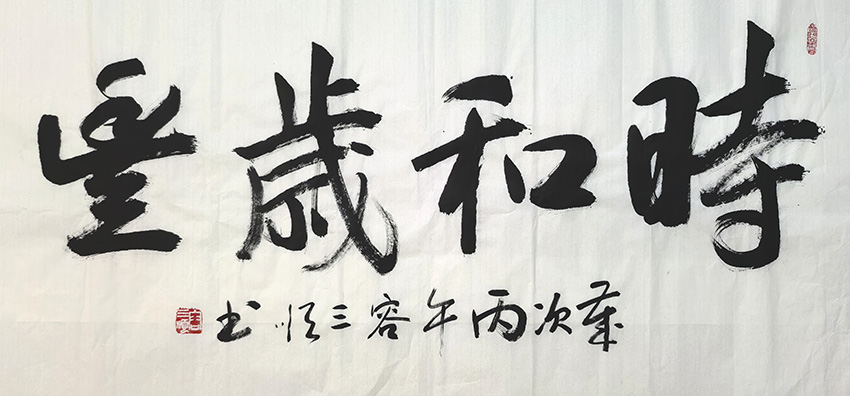 時和歲豐
歲次丙午容三順书